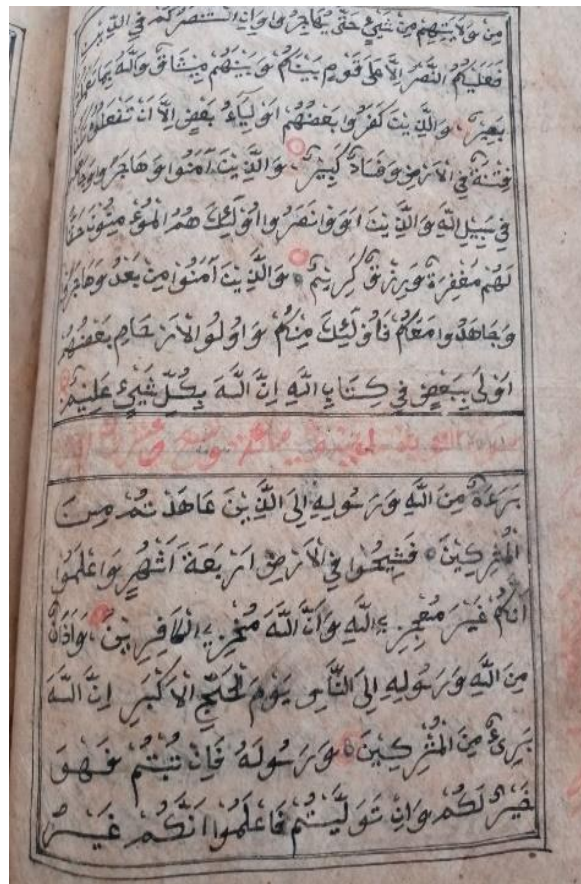 مِنْ وَلَايَتِهِمْ مِنْ شَيْءٍ حَتَّى يُهَاجِرُوا وَاِنِ اسْتَنْصَرُوكُمْ فِي الدِّينِ
فَعَلَيْكُمُ النَّصْرُ اِلَّا عَلَى قَوْمٍ بَيْنَكُمْ وَبَيْنَهُمْ مِيثَاقٌ وَاللَّهُ بِمَا تَعْمَلُونَ
بَصِيرٌ وَالَّذِينَ كَفَرُوا بَعْضُهُمْ اَوْلِيَاءُ بَعْضٍ اِلَّا تَفْعَلُوهُ تَكُنْ
فِتْنَةٌ فِي الْاَرْضِ وَفَسَادٌ كَبِيرٌ وَالَّذِينَ آمَنُوا وَهَاجَرُوا وَجَاهَدُوا
فِي سَبِيلِ اللَّهِ وَالَّذِينَ اٰوَوْا وَنَصَرُوا اُولَئِكَ هُمُ الْمُؤْمِنُونَ حَقًّا
لَهُمْ مَغْفِرَةٌ وَرِزْقٌ كَرِيمٌ وَالَّذِينَ آمَنُوا مِنْ بَعْدُ وَهَاجَرُوا
وَجَاهَدُوا مَعَكُمْ فَاُولَئِكَ مِنْكُمْ وَاُولُوا الْاَرْحَامِ بَعْضُهُمْ
اَوْلَى بِبَعْضٍ فِي كِتَابِ اللَّهِ اِنَّ اللَّهَ بِكُلِّ شَيْءٍ عَلِيمٌ
بَرَءَةٌ مِنَ اللَّهِ وَرَسُولِهِ اِلَى الَّذِينَ عَاهَدْتُمْ مِنَ
الْمُشْرِكِينَ فَسِيحُوا فِي الْاَرْضِ اَرْبَعَةَ اَشْهُرٍ وَاعْلَمُوا
اَنَّكُمْ غَيْرُ مُعْجِزِي اللَّهِ وَاَنَّ اللَّهَ مُخْزِي الْكَافِرِينَ وَاَذَانٌ
مِنَ اللَّهِ وَرَسُولِهِ اِلَى النَّاسِ يَوْمَ الْحَجِّ الْاَكْبَرِ اِنَّ اللَّهَ
بَرِيءٌ مِنَ الْمُشْرِكِينَ وَرَسُولُهُ فَاِنْ تُبْتُمْ فَهُوَ
خَيْرٌ لَكُمْ وَاِنْ تَوَلَّيْتُمْ فَاعْلَمُوا اَنَّكُمْ غَيْرُ